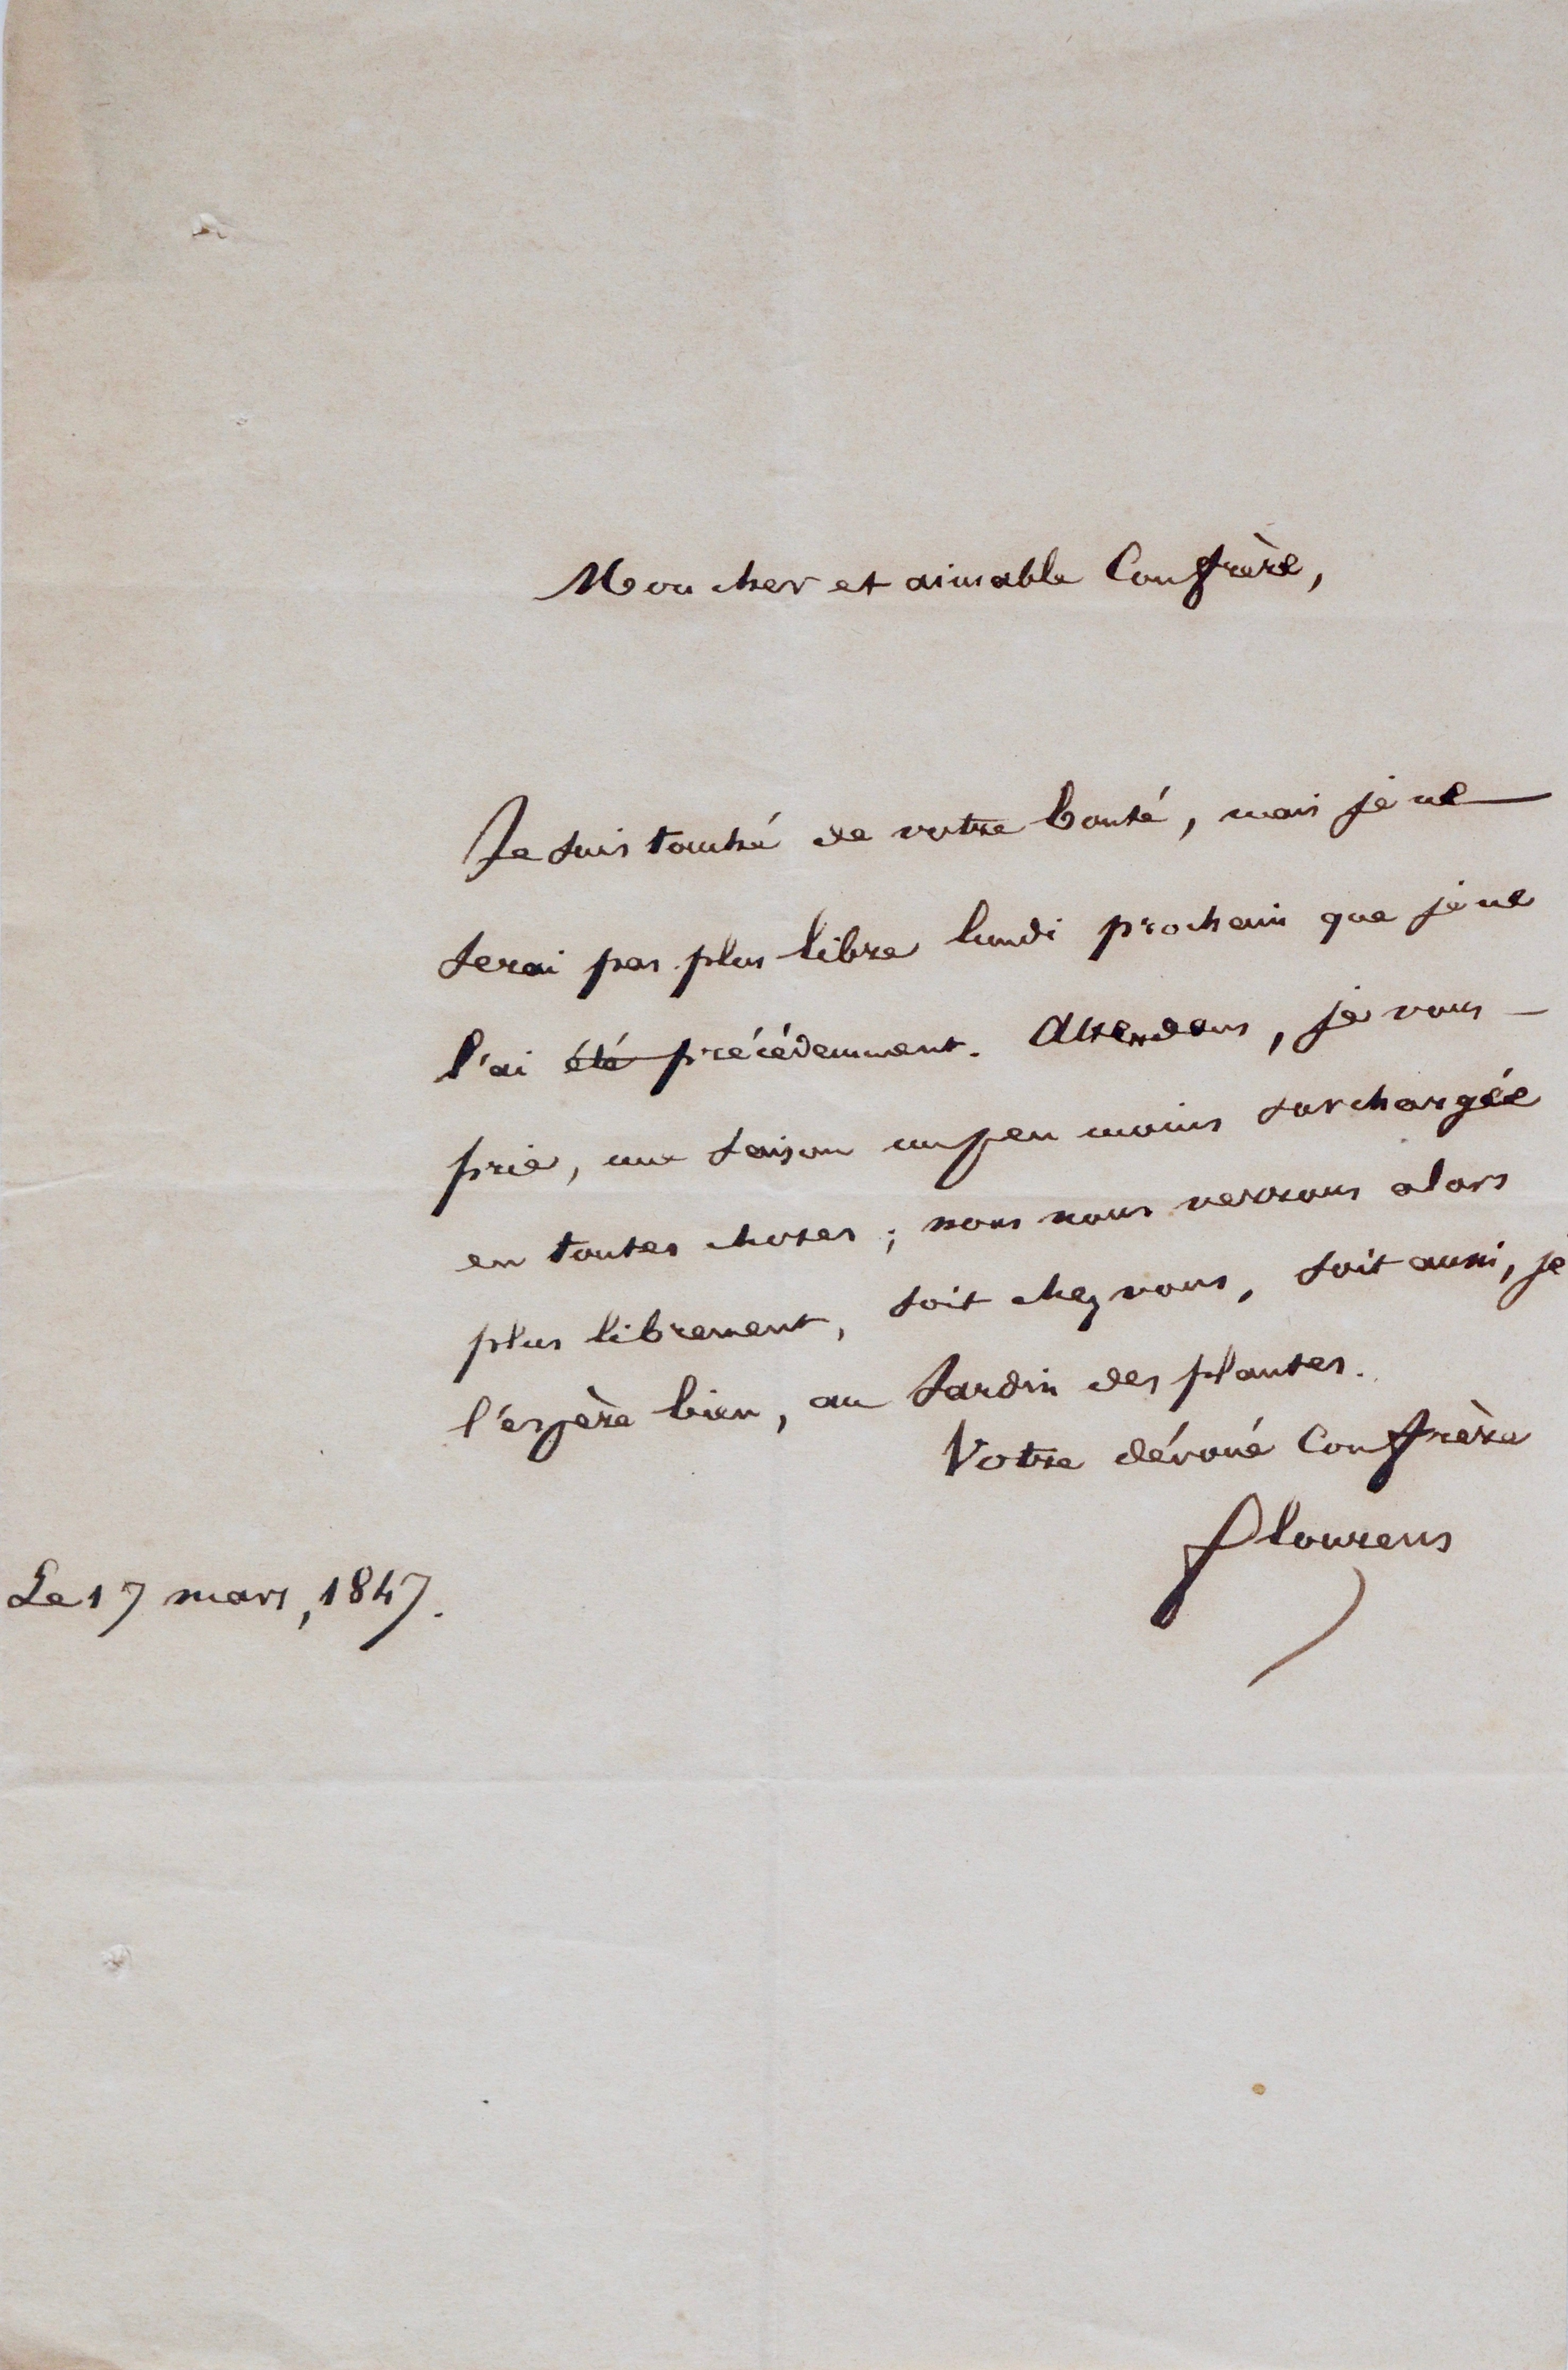 Mon cher et aimable Confrère,
Je suis touché de votre bonté, mais je ne
serai pas plus libre lundi prochain que je ne
l'ai été précédemment. Attendons, je vous
prie, une saison un peu moins surchargée
en toutes choses ; nous nous verrons alors
plus librement, soit chez vous, soit aussi, je
l'espère bien, au Jardin des plantes.
Votre dévoué Confrère
flourens
Le 17 mars, 1847.